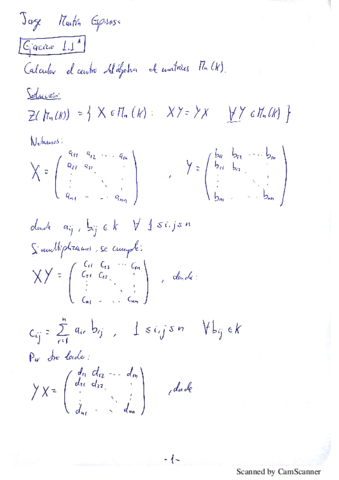 Jorge Martín Espinosa
Ejercicio 1.1ª
Calcular el centro del álgebra de matrices Mn(K).
Solución:
Z(Mn(K)) = { X ∈ Mn(K) : XY = YX ∀Y ∈ Mn(K) }
Notamos:
X = ( a11 a12 ... a1n ; a21 a22 ... ; an1 ... ann ) , Y = ( b11 b12 ... b1n ; b21 b22 ... ; bn1 ... bnn )
donde aij, bij ∈ K ∀ 1 ≤ i,j ≤ n
Si multiplicamos se cumple:
XY = ( c11 c12 ... c1n ; c21 c22 ... ; cn1 ... cnn ) , donde:
cij = Σ air brj , 1 ≤ i,j ≤ n ∀bij ∈ K
Por otro lado:
YX = ( d11 d12 ... d1n ; d21 d22 ... ; dn1 ... dnn ) , donde
-1-
Scanned by CamScanner